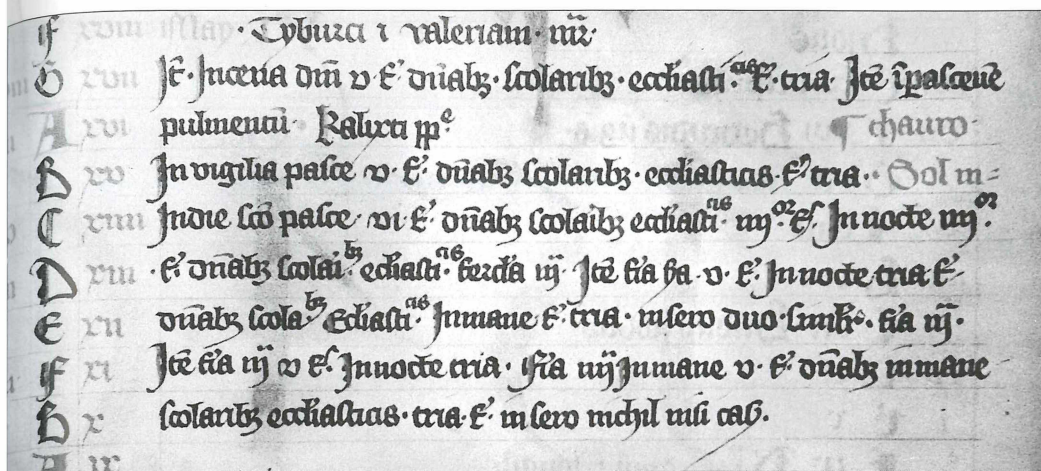 f xviii · Tyburci ⁊ valeriani · mr̄ ·
G xvii It̄ · In cena dn̄i v · f᷒ · dn̄abꝫ · scolaribꝫ · eccl̄iasticis · f᷒ · tria · Itē ī pasceuē
A xvi pulmentū · Kalixti pp̄e ¶ thauro ·
B xv In vigilia pasce · v · f᷒ · dn̄abꝫ scolaribꝫ · eccl̄iasticis · f᷒ · tria · Sol in =
C xiiii In die scō pasce · vi f᷒ · dn̄abꝫ scolaībꝫ eccl̄iasticis · iiijor · f᷒ · In nocte iiijor ·
D xiii · f᷒ · dn̄abꝫ scolaībꝫ ecl̄iasticis · iij · Itē f̄ia · v · f᷒ · In nocte tria f᷒ ·
E xii dn̄abꝫ scolabꝫ Ecl̄iasticis · In mane f᷒ · tria · in sero duo · simil᷒r · f̄ia iij ·
f xi Itē f̄ia iij v f᷒ · In nocte tria · f̄ia iiij In mane v · f᷒ · dn̄abꝫ in mane
G x scolaribꝫ eccl̄iasticis · tria · f᷒ · in sero nichil nisi cas᷒ ·
A ix